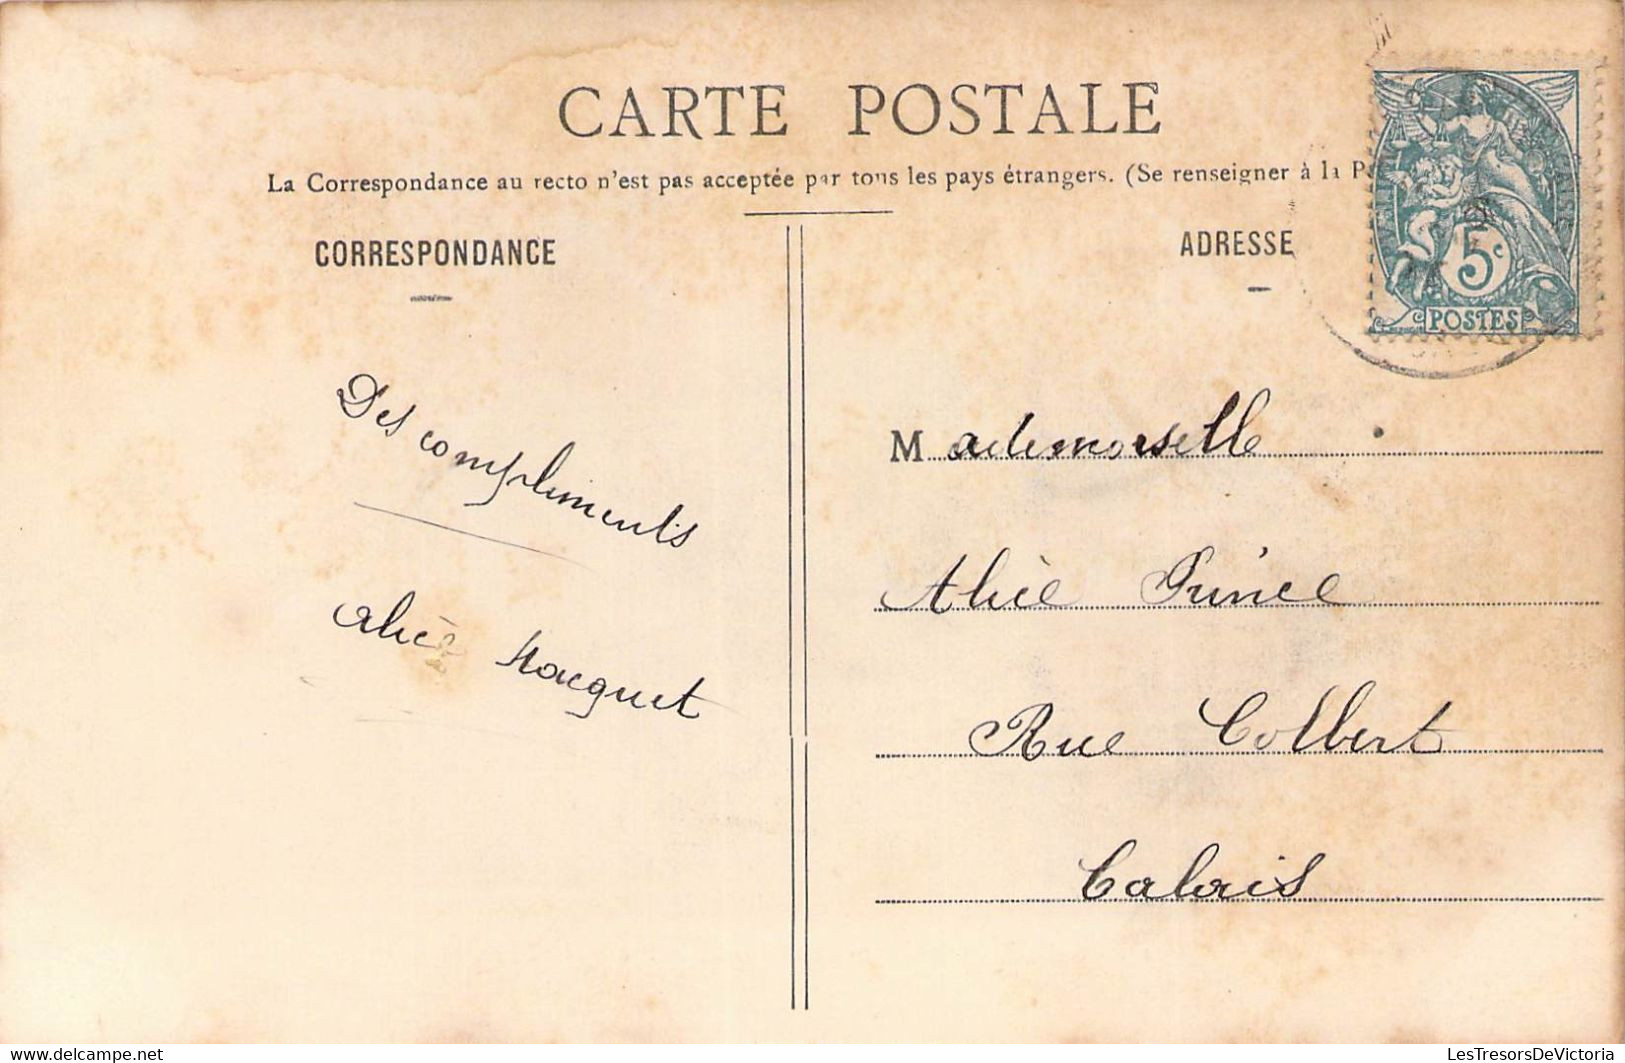 CARTE POSTALE
La Correspondance au recto n'est pas acceptée par tous les pays étrangers. (Se renseigner à la P
CORRESPONDANCE
ADRESSE
5c
POSTES
Des compliments
Alice
Mademoiselle
Alice Prince
Rue Colbert
Calais
delcampe.net
LesTresorsDeVictoria